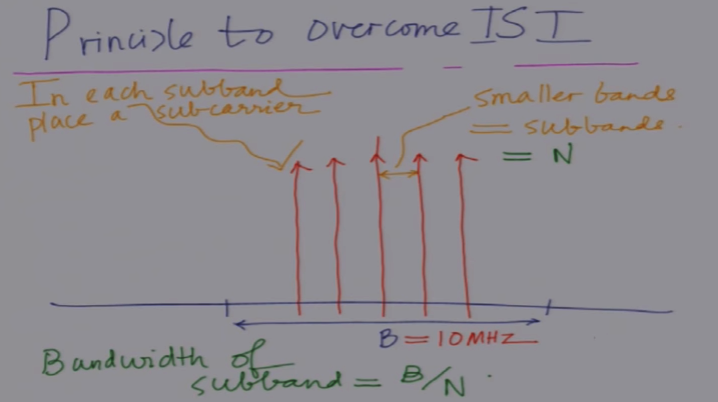 Principle to overcome ISI
In each subband
place a subcarrier
smaller bands
= subbands.
= N
B = 10MHz
Bandwidth of
subband = B/N.